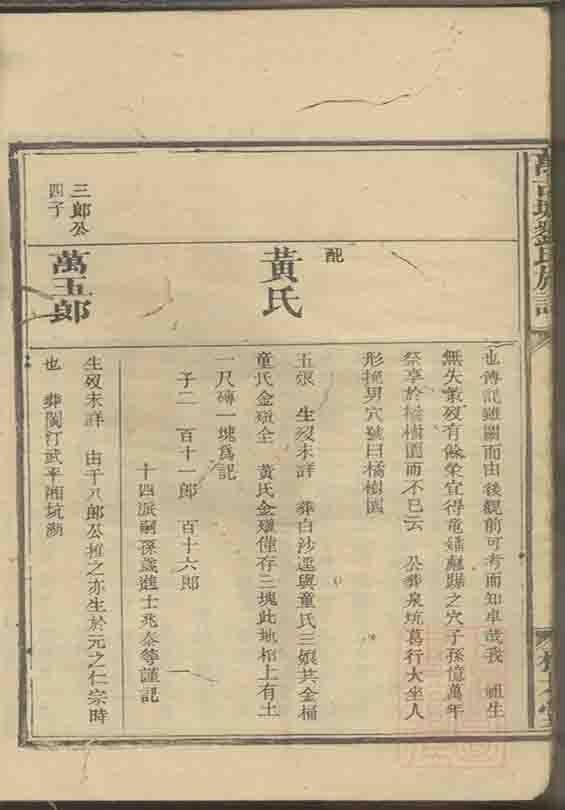 劉氏族譜
也傳記雖闕而由後觀前可考而知卓哉我 祖生
無失業歿有餘榮宜得 之穴子孫億萬年
祭享於橘樹園而不已云 公葬泉坑葛行大坐人
形 男穴號曰橘樹園
配
黃氏
五 生歿未詳 葬白沙逕與童氏三娘共金桶
童氏金殖全 黃氏金殖僅存三塊此地棺上有土
一尺磚一塊爲記
子二 百十一郎 百十六郎
十四派嗣孫歲進士兆泰等謹記
三郎公
四子
萬五郎
生歿未詳 由千八郎公推之亦生於元之仁宗時
也 葬閩汀武平湘坑湖